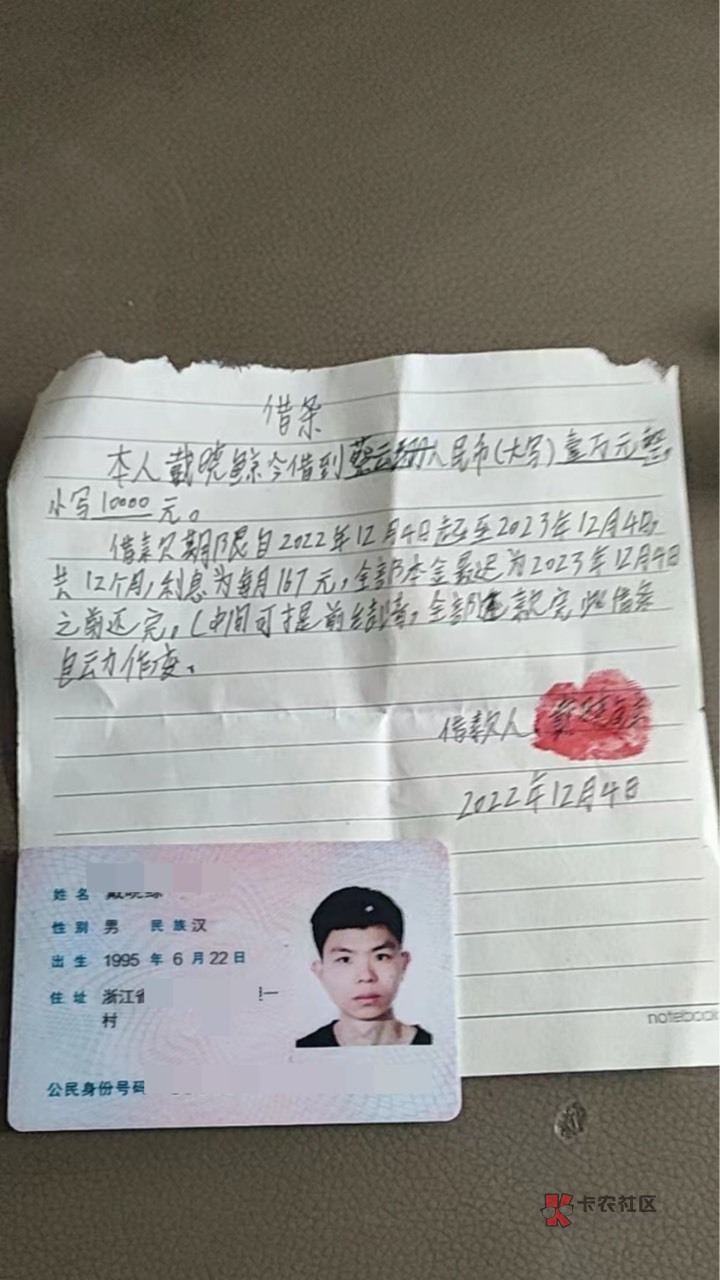 借条
本人戴晓鲸今借到蔡云珊人民币(大写)壹万元整,
小写10000元。
借款期限自2022年12月4日起至2023年12月4日,
共12个月,利息为每月167元,全部本金最迟为2023年12月4日
之前还完,(中间可提前结清,全部还款完此借条
自动作废、
借款人:戴晓鲸
2022年12月4日
姓名
性别 男 民族 汉
出生 1995 年 6 月 22 日
住址 浙江省
村
公民身份号码
notebook
卡农社区